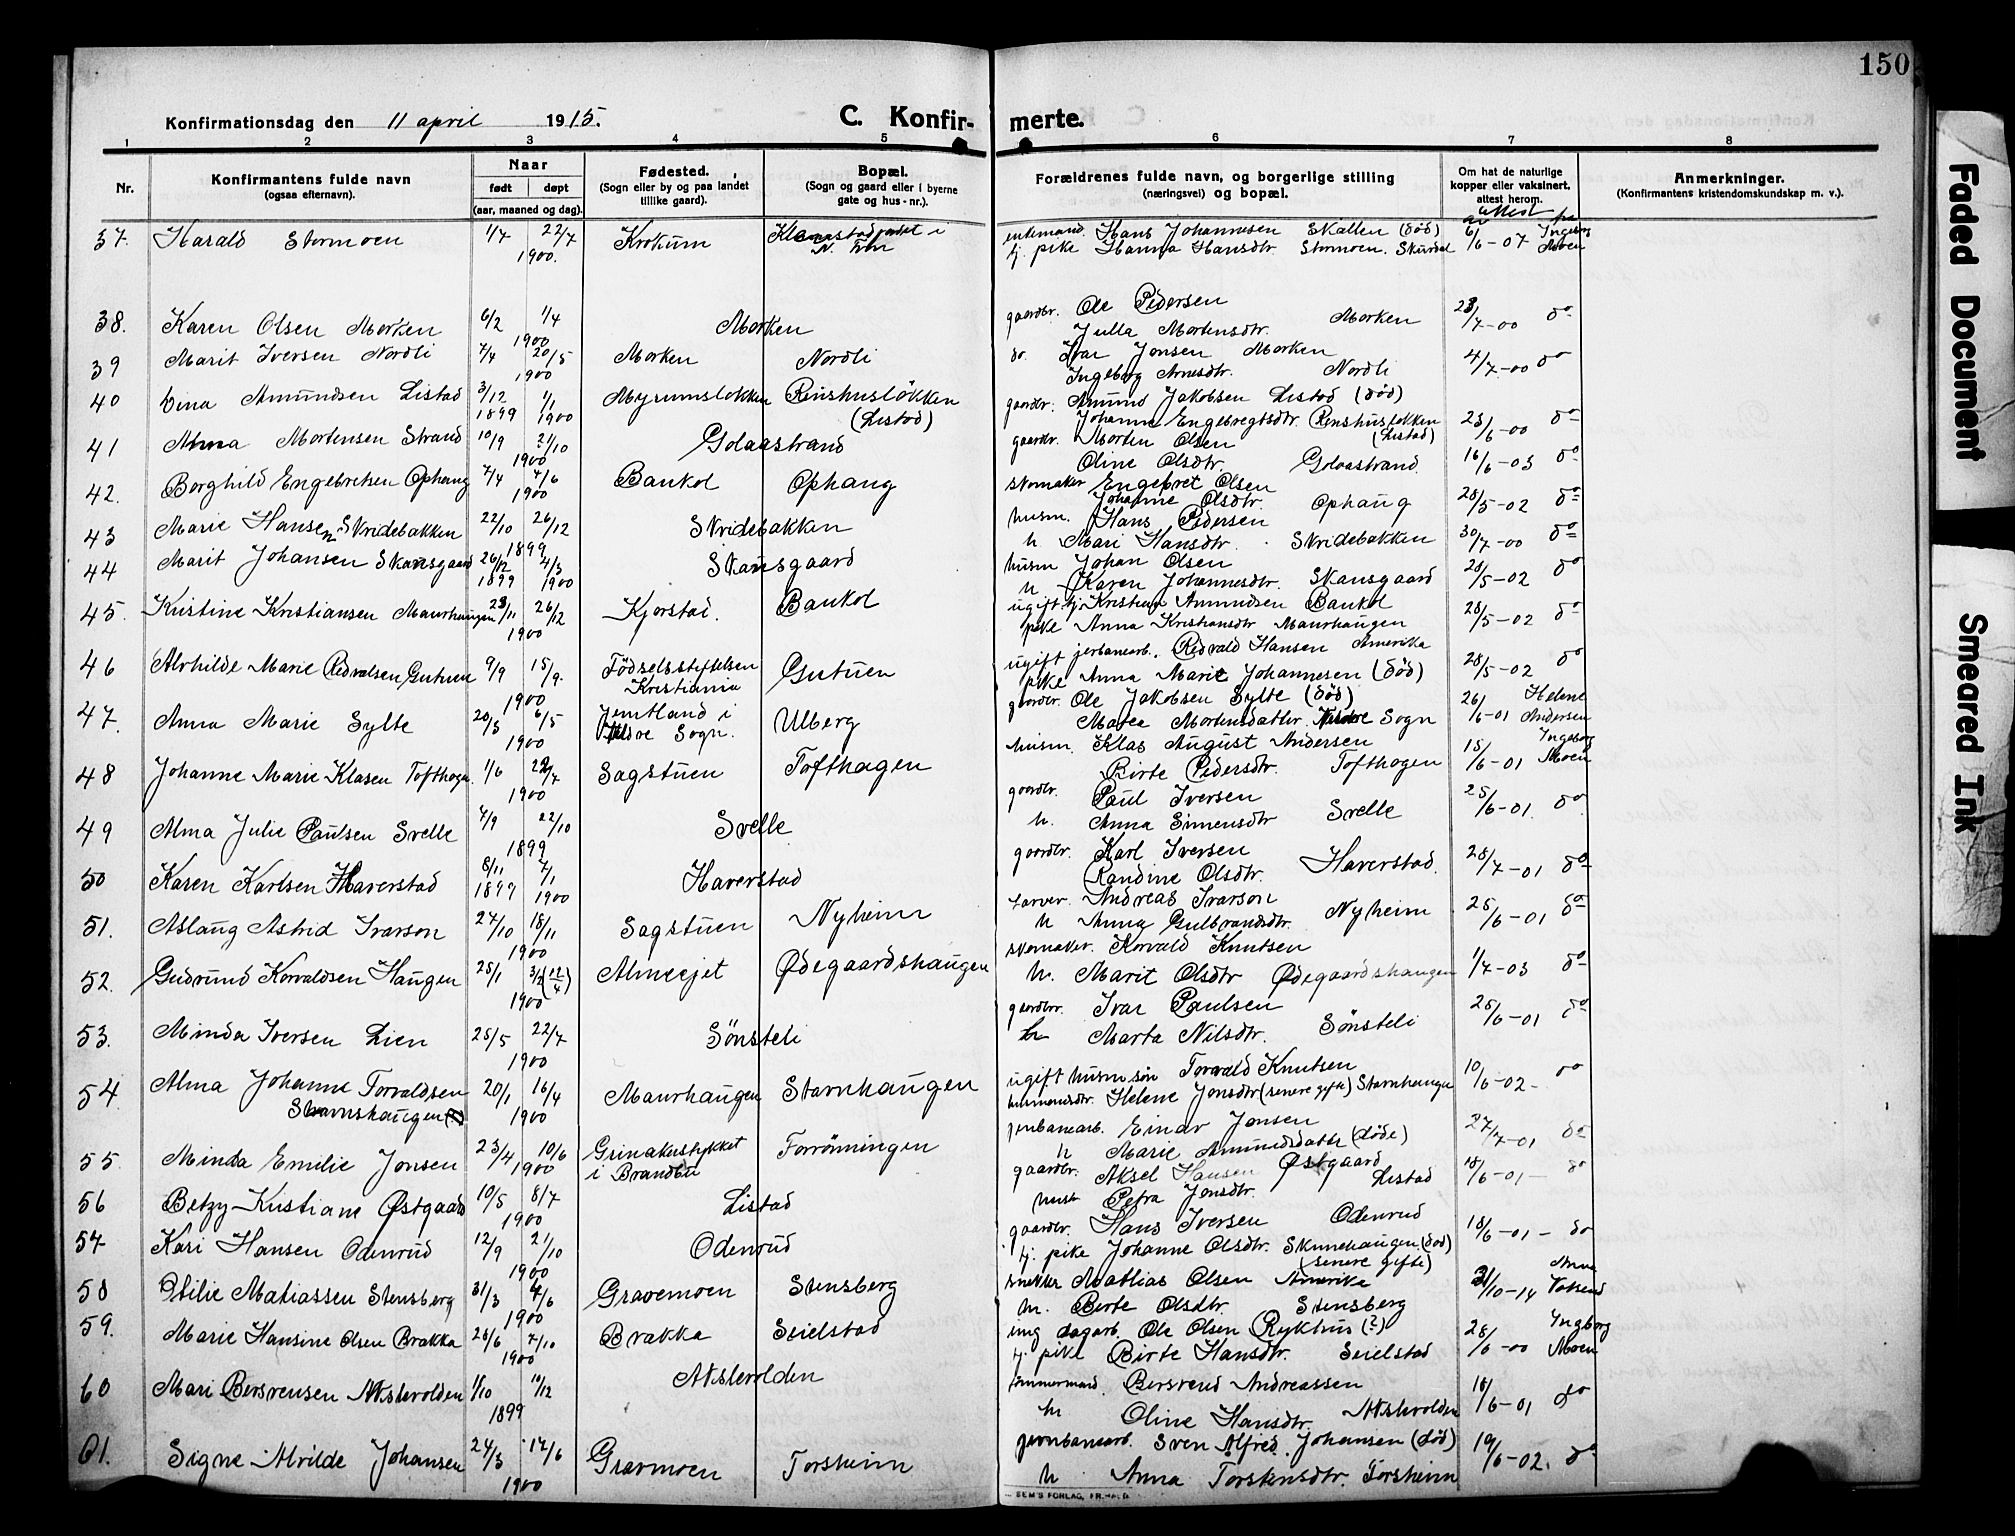 150
Konfirmationsdag den 11 april 1915.
C. Konfirmerte.
1 2 3 4 5 6 7 8
Nr.
Konfirmantens fulde navn
(ogsaa efternavn).
Naar
født døpt
(aar, maaned og dag).
Fødested.
(Sogn eller by og paa landet
tillike gaard).
Bopæl.
(Sogn og gaard eller i byerne
gate og hus-nr.).
Forældrenes fulde navn, og borgerlige stilling
(næringsvei) og bopæl.
Om hat de naturlige
kopper eller vaksinert,
attest herom.
Anmerkninger.
(Konfirmantens kristendomskundskap m. v.).
37. Harald Stormoen 1/7 22/7 1900. Krokum i N. Fron
enkemand Hans Johannesen Skallen (død) 6/6-07 attest fra Ingeborg Moen
tj. pike Hanna Hansdtr. Stormoen. Skurdal
38. Karen Olsen Morken 6/2 1/4 1900 Morken
gaardbr. Ole Pedersen Morken 23/7-00 do
Julla Mortensdtr.
39 Marit Iversen Nordli 7/4 20/5 1900 Morken Nordli
do. Ivar Jonsen Morken 4/7-00 do
Ingeborg Arnesdtr. Nordli
40 Lina Amundsen Listad 3/12 1899 1/1 1900 Myrumsløkken Renshusløkken (Listad)
gaardbr. Amund Jakobsen Listad (død)
Johanne Engebregtsdtr. Renshusløkken (Listad) 23/6-00 do
41 Alma Mortensen Strand 10/9 21/10 1900 Golaastrand
gaardbr. Morten Olsen
Oline Olsdtr. Golaastrand 16/6-03 do
42. Borghild Engebretsen Ophaug 7/4 4/6 1900 Bankol Ophaug
skomaker Engebret Olsen
Johanne Olsdtr. Ophaug 28/5-02 do
43 Marie Hansen Skridebakken 22/10 26/12 1899 Skridebakken
husm. Hans Pedersen
h. Mari Hansdtr. Skridebakken 30/7-00 do
44 Marit Johansen Skansgaard 26/12 1899 4/3 1900 Skansgaard
husm Johan Olsen
h Karen Johannesdtr. Skansgaard 28/5-02 do
45. Kristine Kristiansen Maurhaugen 23/11 26/12 1900 Kjorstad. Bankol
ugift tj. Kristian Amundsen Bankol
pike Anna Kristiansdtr Maurhaugen 28/5-02 do
46 Alvhilde Marie Redvalsen Gutuen 9/9 15/9. 1900 Fødselsstiftelsen Kristiania Gutuen
ugift jerbanearb. Redvald Hansen Amerika
pike Anna Marie Johannesen (død) 28/5-02 do
47. Anna Marie Sylte 20/3 6/5 1900 Jemtland i Sogn. Ulberg
gaardbr. Ole Jakobsen Sylte (død)
Marta Mortensdatter Sogn 26/6-01 Helene Andersen
48 Johanne Marie Klasen Tofthagen 1/6 22/7 1900 Sagstuen Tofthagen
husm. Klas August Andersen
Birte Pedersdtr. Tofthagen 15/6-01 Ingeborg Moen
49 Alma Julie Paulsen Svelle 7/9 22/10 1899 Svelle
gaardbr. Paul Iversen
h. Anna Simensdtr Svelle 25/6-01. do
50 Karen Karlsen Haverstad 8/11 1899 7/1 1900 Haverstad
gaardbr. Karl Iversen
Randine Olsdtr. Haverstad. 28/7-01 do
51. Aslaug Astrid Ivarson 27/10 18/11 1900 Sagstuen Nyheim
farver. Andreas Ivarson
h Anna Gulbrandsdtr. Nyheim 25/6-01 do
52. Gudrund Korvaldsen Haugen 25/1 3/2 (12/4) 1900 Almeejet Ødegaardshaugen
skomaker. Korvald Knutsen
h. Marit Olsdtr Ødegaardshaugen 1/7-03 do
53. Minda Iversen Lien 25/5 22/7 1900 Sönsteli
gaardbr. Ivar Paulsen
h Marta Nilsdtr. Sönsteli 25/6-01 do
54. Alma Johanne Torvaldsen Starnshaugen 20/1 16/4 1900 Maurhaugen Starnhaugen
ugift husm.søn Torvald Knutsen
husmandsdtr. Helene Jonsdtr (senere gifte) Starnhaugen 10/6-02- do
55. Minda Emilie Jonsen 23/4 10/6 1900 Grinakerstykket i Brandbu Forrönningen
jernbanearb. Einar Jonsen
h Marie Amundsdatter (døde) 27/7-01 do
56 Betzy Kristiane Østgaard 10/5 8/7 1900 Listad
gaardbr. Aksel Hansen Østgaard
hustr Petra Jonsdtr. Listad 18/6-01- do
57. Kari Hansen Odenrud 12/9 21/10 1900 Odenrud
gaardbr. Hans Iversen Odenrud
tj. pike Johanne Olsdtr. Skinnehaugen (død) (senere gifte) 18/6-01- do
58 Otilie Matiassen Stensberg 31/3 4/6 1900 Gravemoen Stensberg
snekker Mathias Olsen Amerika
h. Berte Olsdtr. Stensberg 31/10-14 Anna
59. Marie Hansine Olsen Brakka 28/6 7/10 1900 Brakka Seielstad
ung dagarb. Ole Olsen Rykhus (?)
tj. pike Birte Hansdtr. Seielstad 28/6-00 Ingborg Moen
60 Mari Bersvensen Aksterolden 1899
tømmermand. Bersvend Andreassen
h Oline Hansdtr. 18/6-01 do
61. Signe Alvilde Johansen 24/3 17/6 1900 Gravmoen Torsheim
jernbanearb. Sven Alfred Johansen (død)
h Anna Torstensdtr. Torsheim 19/6-02. do
SEM'S FORLAG, FR.HALD.
Faded Document
Smeared Ink